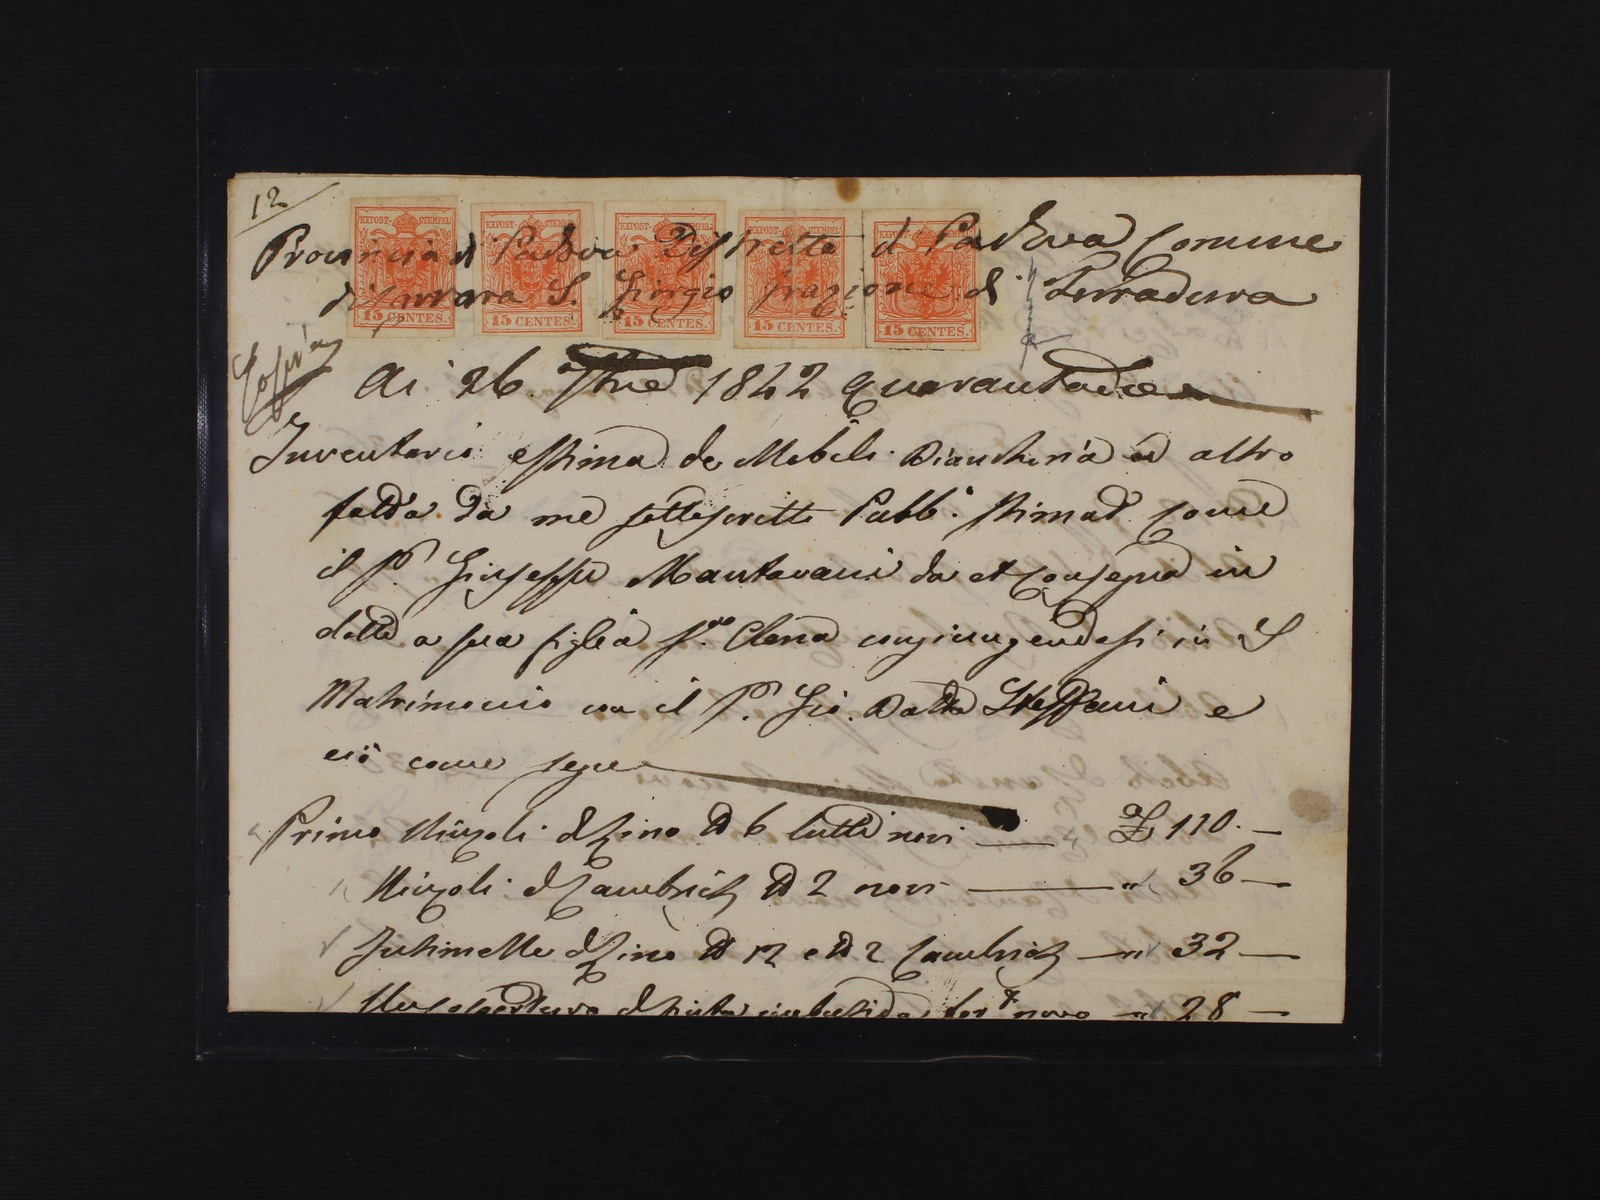 12
EXPOST-STEMPEL EXPOST-STEMPEL EXPOST-STEMPEL EXPOST-STEMPEL EXPOST-STEMPEL
Provincia di Padova Distretto di Padova Comune
di Carrara S. Giorgio frazione di Terradura
15 CENTES. 15 CENTES. 15 CENTES. 15 CENTES. 15 CENTES.
Ai 26 1842 quarantadue
Inventario e stima de Mobili Biancheria ed altro
fatta da me sottoscritto Pubb. Stimad. come
il Sr. Giuseppe Mantovani da et consegna in
dotte a sua figlia Elena congiungendosi in
Matrimonio con il Sr. Gio. Batta Steffani e
ciò come segue
Primo Ninzoli di lino No 6 tutti novi 110.—
Ninzoli di Cambrich No 2 novi " 36—
Intimelle di lino No 12 e No 2 Cambrich " 32—
novo " 28—